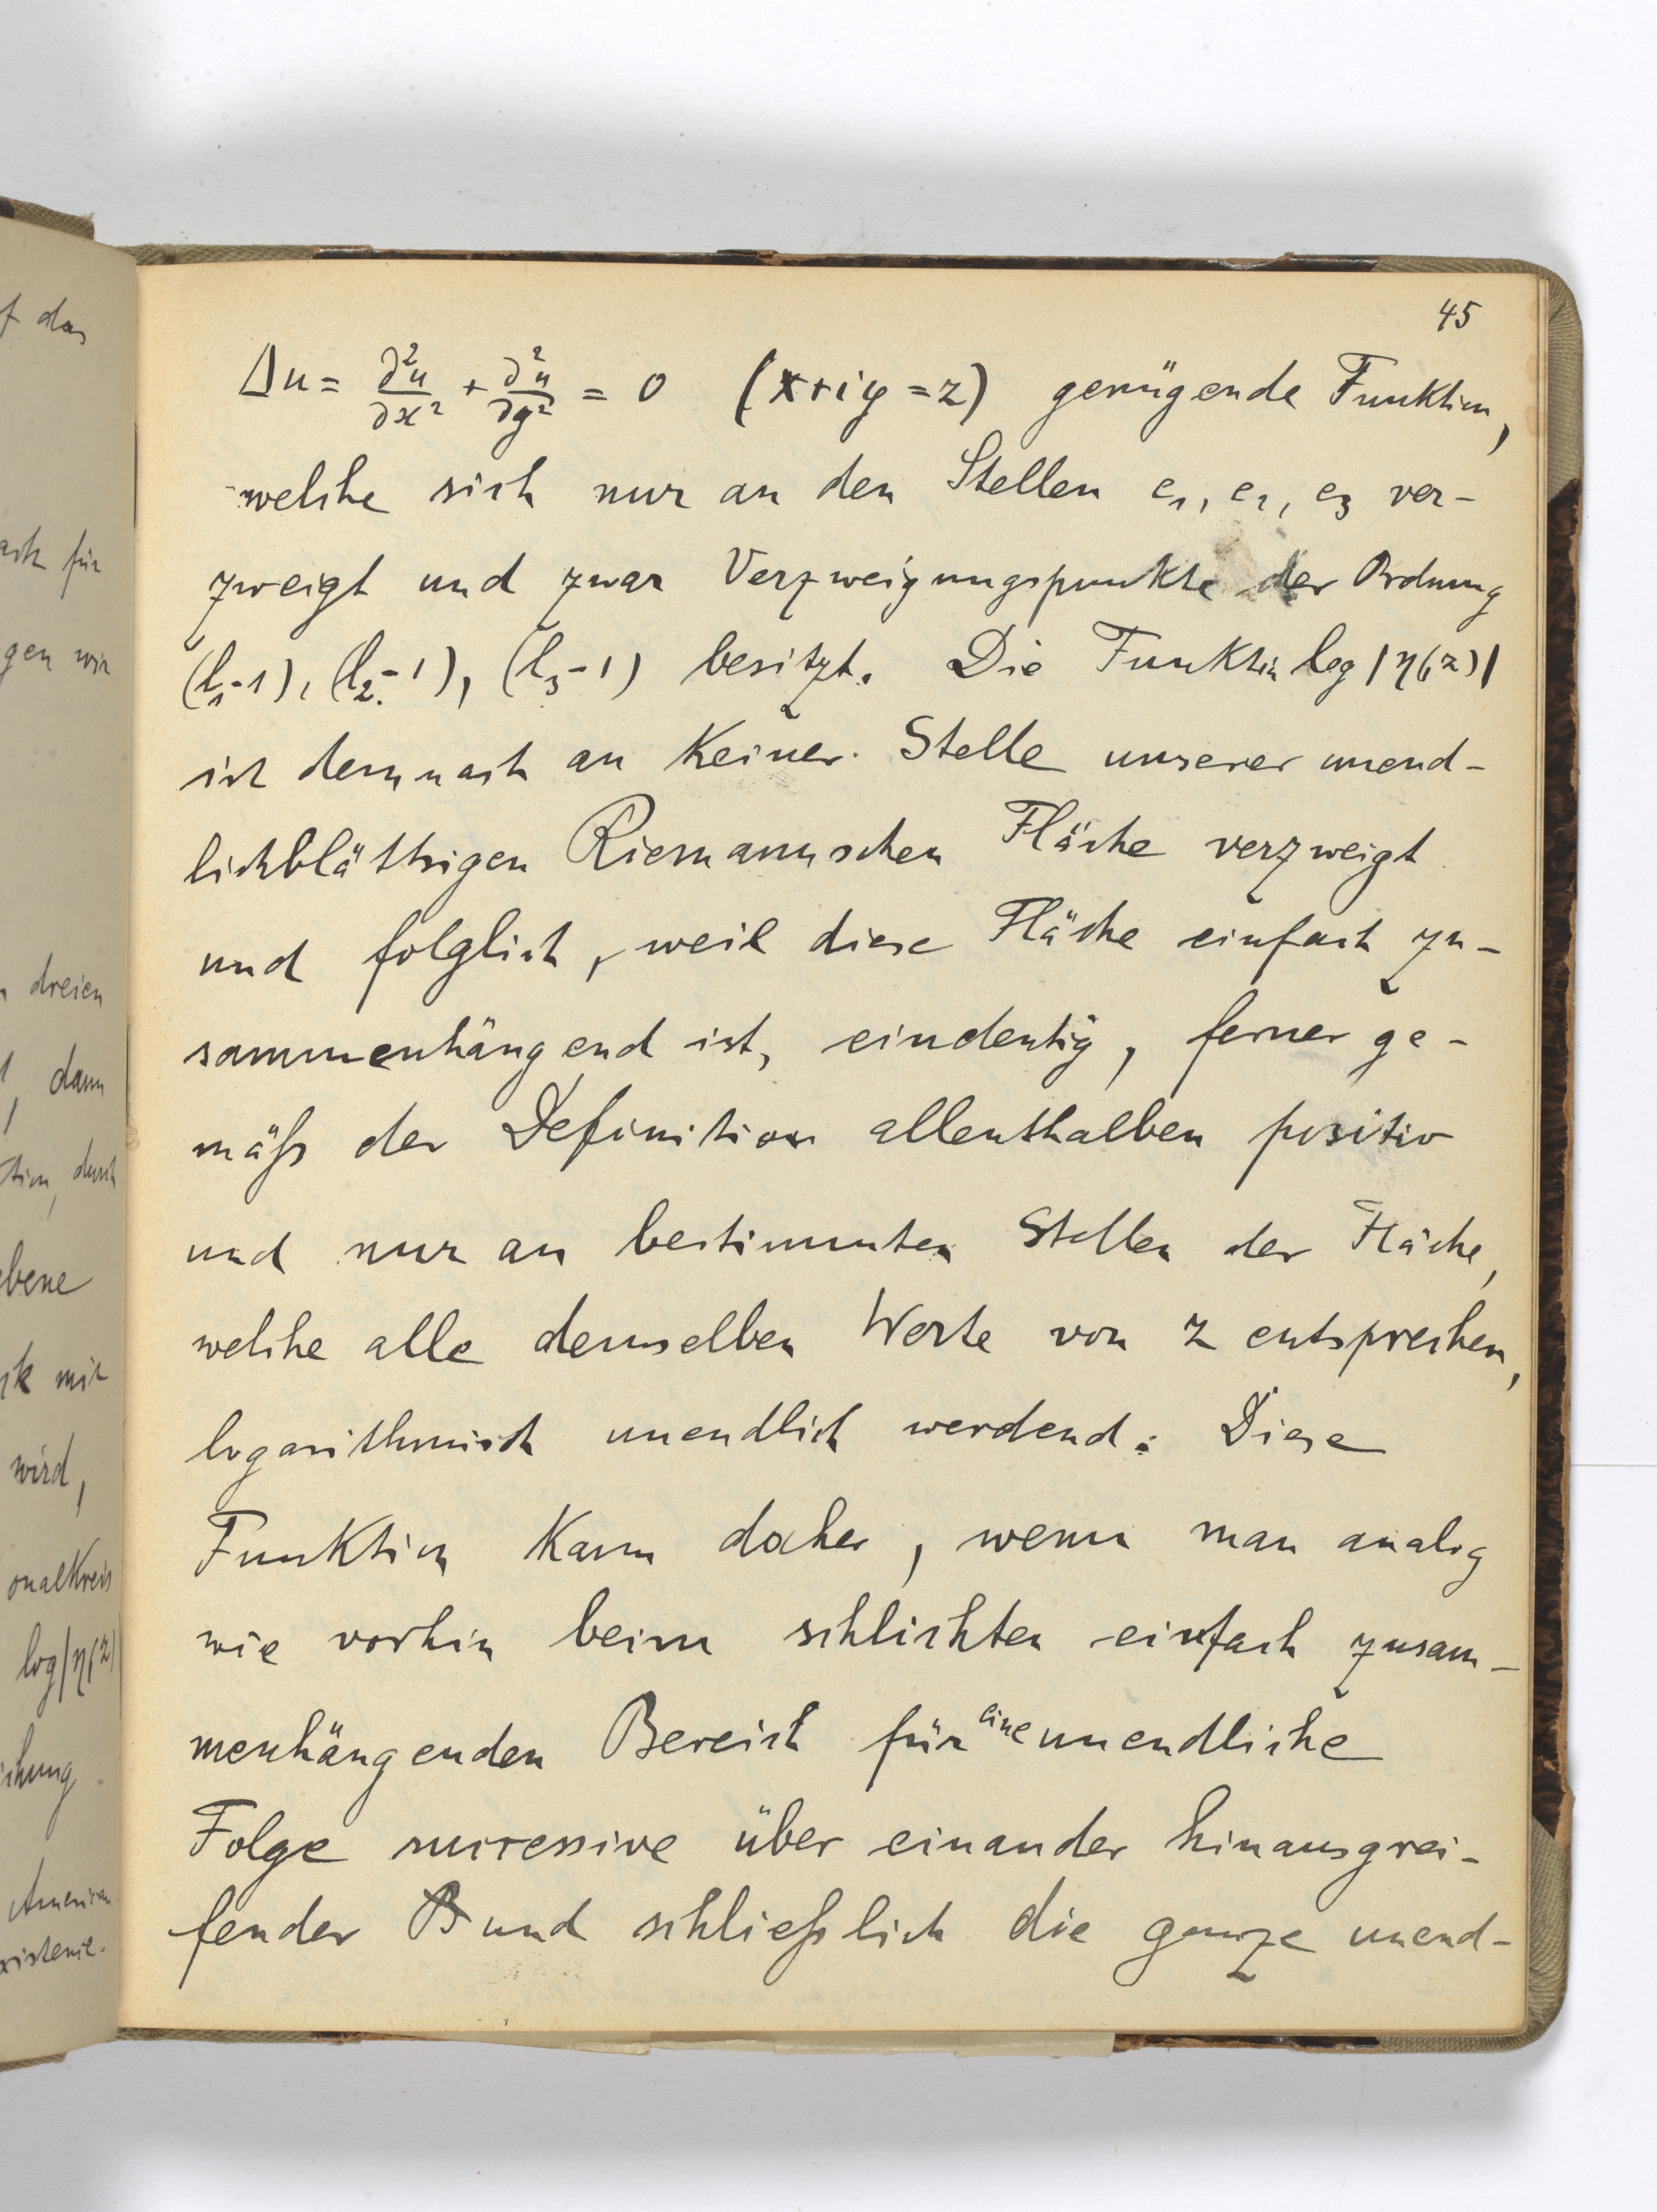 45
Δu = ∂²u/∂x² + ∂²u/∂y² = 0 (x+iy=z) genügende Funktion,
welche sich nur an den Stellen e₁, e₂, e₃ ver-
zweigt und zwar Verzweigungspunkte der Ordnung
(l₁-1), (l₂-1), (l₃-1) besitzt. Die Funktion log|η(z)|
ist demnach an keiner Stelle unserer unend-
lichblättrigen Riemannschen Fläche verzweigt
und folglich, weil diese Fläche einfach zu-
sammenhängend ist, eindeutig, ferner ge-
mäß der Definition allenthalben positiv
und nur an bestimmten Stellen der Fläche,
welche alle demselben Werte von z entsprechen,
logarithmisch unendlich werdend. Diese
Funktion kann daher, wenn man analog
wie vorhin beim schlichten einfach zusam-
menhängenden Bereich für eine unendliche
Folge successive über einander hinausgrei-
fender B und schließlich die ganze unend-
f das
für
gen wir
dreien
dann
durch
ebene
mit
wird,
log|η(z)|